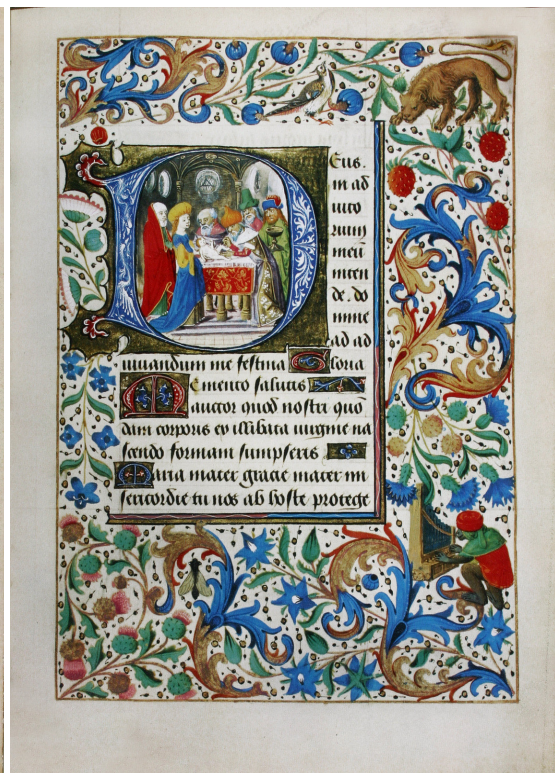 Deus.
in ad
iuto
rium
meū
inten
de. do
mine
ad ad
iuuandum me festina Gloria
Memento salutis
auctor quod nostri quo
dam corporis ex illibata uirgine na
scendo formam sumpseris
Maria mater gracie mater mi
sericordie tu nos ab hoste protege